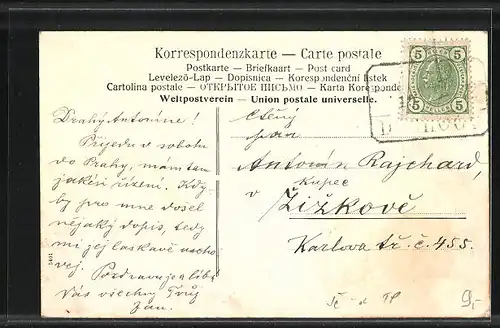 Korrespondenzkarte — Carte postale
Postkarte — Briefkaart — Post card
Levelező-Lap — Dopisnica — Korespondenční listek
Cartolina postale — ОТКРЫТОЕ ПИСЬМО — Karta Koresponde
Weltpostverein — Union postale universelle.
5 5
5 5
Drahý Antoníne!
Přijedu v sobotu
do Prahy, mám tam
jakési řízení. Kdy-
by pro mne došel
nějaký dopis, tedy
mi jej laskavě uscho-
vej. Pozdravuje a líbá
Vás všechny Tvůj
Jan.
Ctěný
pan
Antonín Rajchard,
kupec
v Žižkově
Karlova tř. č. 455.
9,-